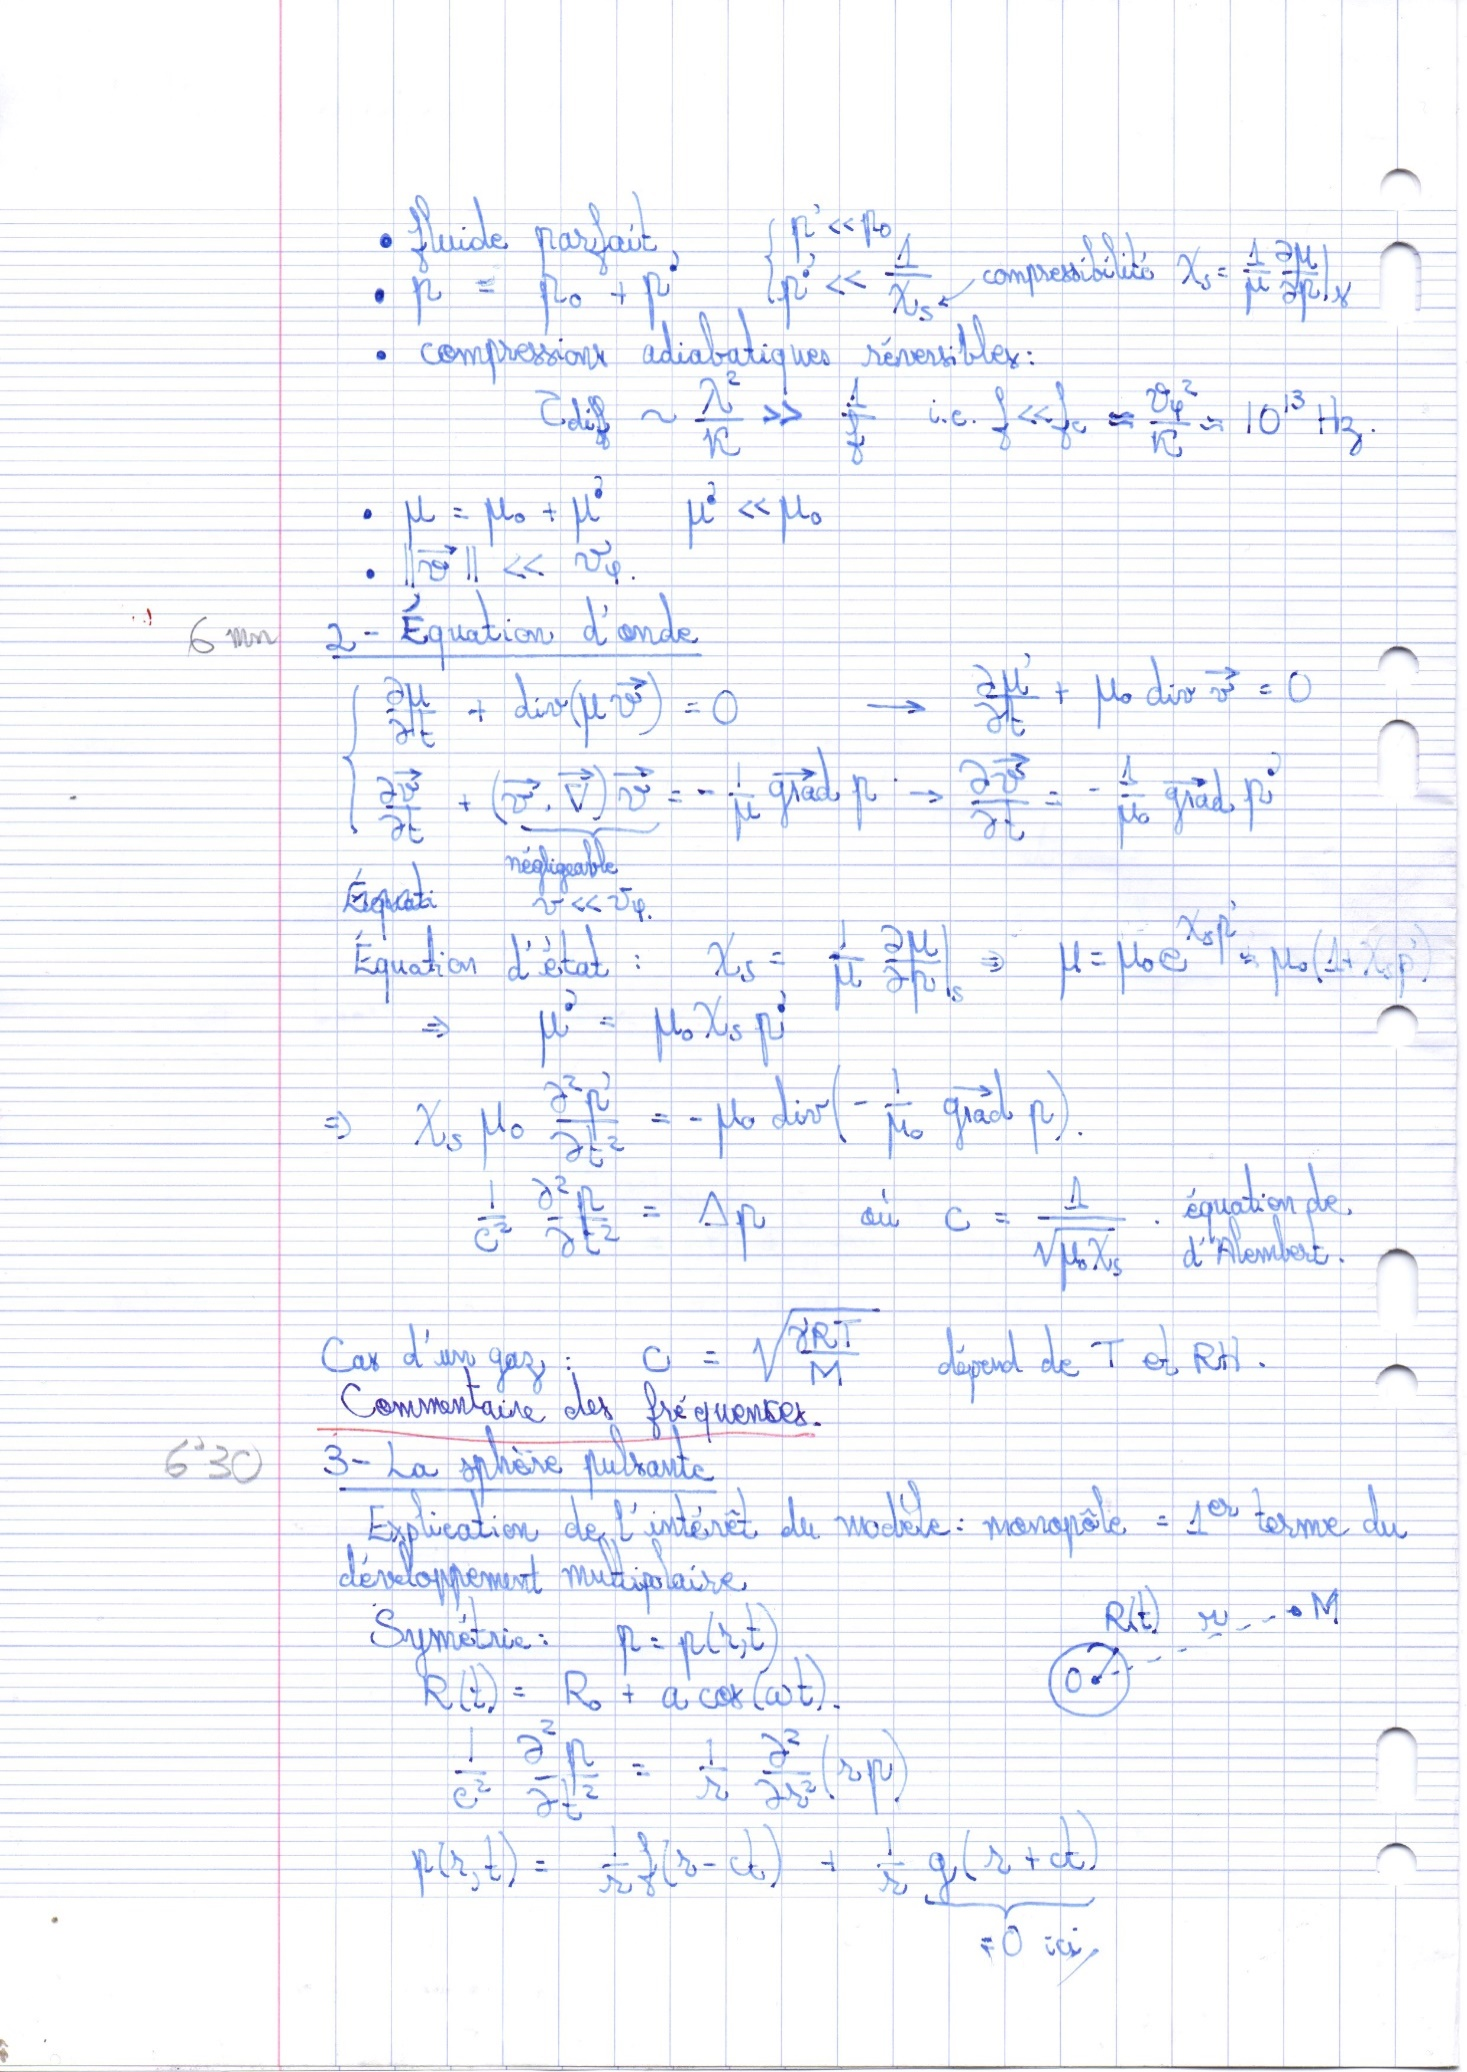 • fluide parfait, { p' << p₀
• p = p₀ + p' { p' << 1/χ_S ← compressibilité χ_S = 1/μ ∂μ/∂p|_S
• compressions adiabatiques réversibles :
τ_diff ~ λ²/κ >> 1/f i.e. f << f_c ≈ v_φ²/κ ≈ 10¹³ Hz.
• μ = μ₀ + μ' μ' << μ₀
• ||v⃗|| << v_φ.
6 mn 2 - Équation d'onde
{ ∂μ/∂t + div(μv⃗) = 0 → ∂μ'/∂t + μ₀ div v⃗ = 0
{ ∂v⃗/∂t + (v⃗.∇⃗)v⃗ = - 1/μ grad⃗ p → ∂v⃗/∂t = - 1/μ₀ grad⃗ p'
négligeable
Équati v << v_φ.
Équation d'état : χ_S = 1/μ ∂μ/∂p|_S ⇒ μ = μ₀ e^{χ_S p'} ≈ μ₀(1 + χ_S p')
⇒ μ' = μ₀ χ_S p'
⇒ χ_S μ₀ ∂²p'/∂t² = - μ₀ div(- 1/μ₀ grad⃗ p).
1/c² ∂²p/∂t² = Δp où c = 1/√(μ₀χ_S) . équation de
d'Alembert.
Cas d'un gaz : c = √(γRT/M) dépend de T et RH.
Commentaire des fréquences.
6'30 3 - La sphère pulsante
Explication de l'intérêt du modèle : monopôle = 1er terme du
développement multipolaire
R(t) r M
Symétrie : p = p(r,t)
O
R(t) = R₀ + a cos(ωt).
1/c² ∂²p/∂t² = 1/r ∂²/∂r² (rp)
p(r,t) = 1/r f(r - ct) + 1/r g(r + ct)
= 0 ici